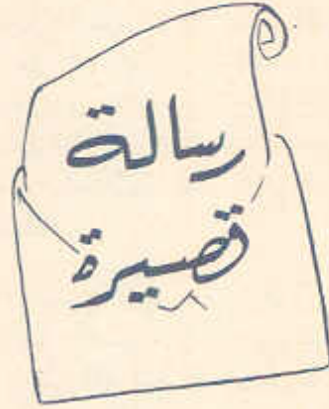 رسالة
قصيرة